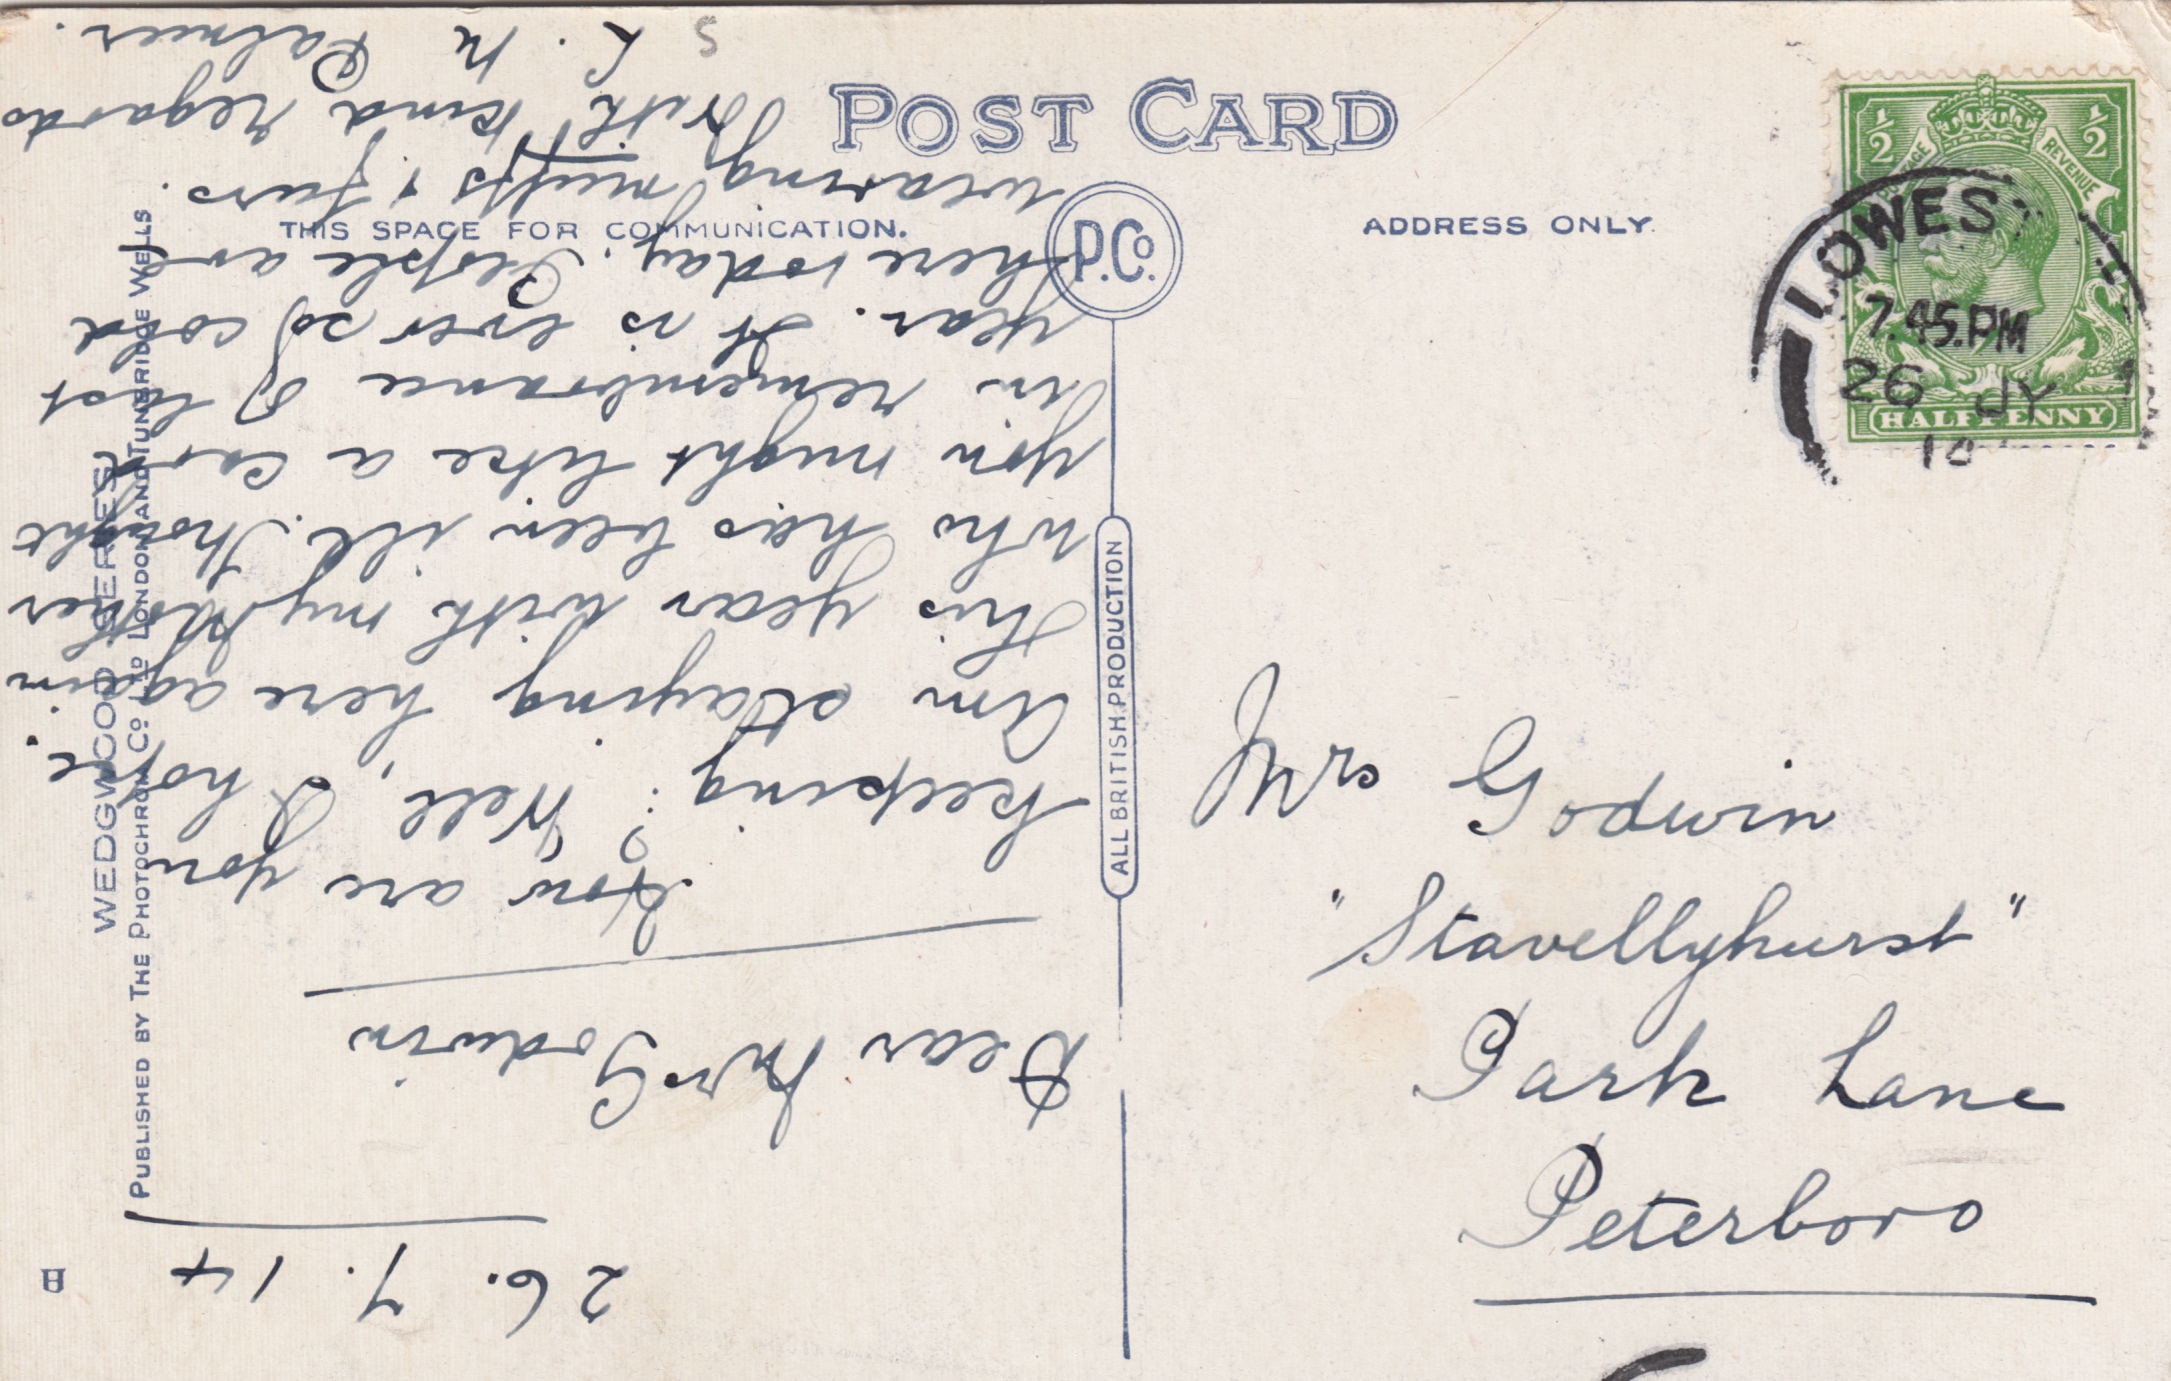 POST CARD
THIS SPACE FOR COMMUNICATION.
ADDRESS ONLY.
P.Co.
ALL BRITISH PRODUCTION
WEDGWOOD SERIES
PUBLISHED BY THE PHOTOCHROM Co. LTD LONDON AND TUNBRIDGE WELLS
B
1/2 1/2
POSTAGE REVENUE
HALFPENNY
LOWEST
7.45.PM
26 JY
Mrs Godwin
"Stavellyhurst"
Park Lane
Peterboro
26. 7. 14
Dear Mrs Godwin
How are you
keeping? Well, I hope.
Am staying here again
this year with my Mother
who has been ill. Thought
you might like a card
in remembrance of last
year. It is ever so cold
here today. People are
wearing muffs & furs.
With kind regards
L. M Palmer.
S